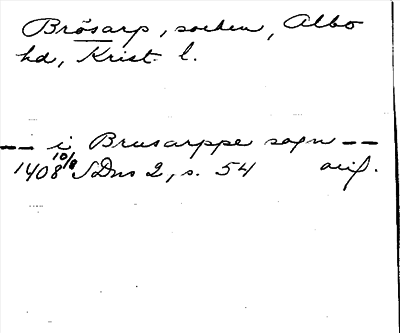 Brösarp, socken, Albo
hd, Krist. l.
-- i Brusarppe sogn --
1408 10/8 SDns 2, s. 54 avif.